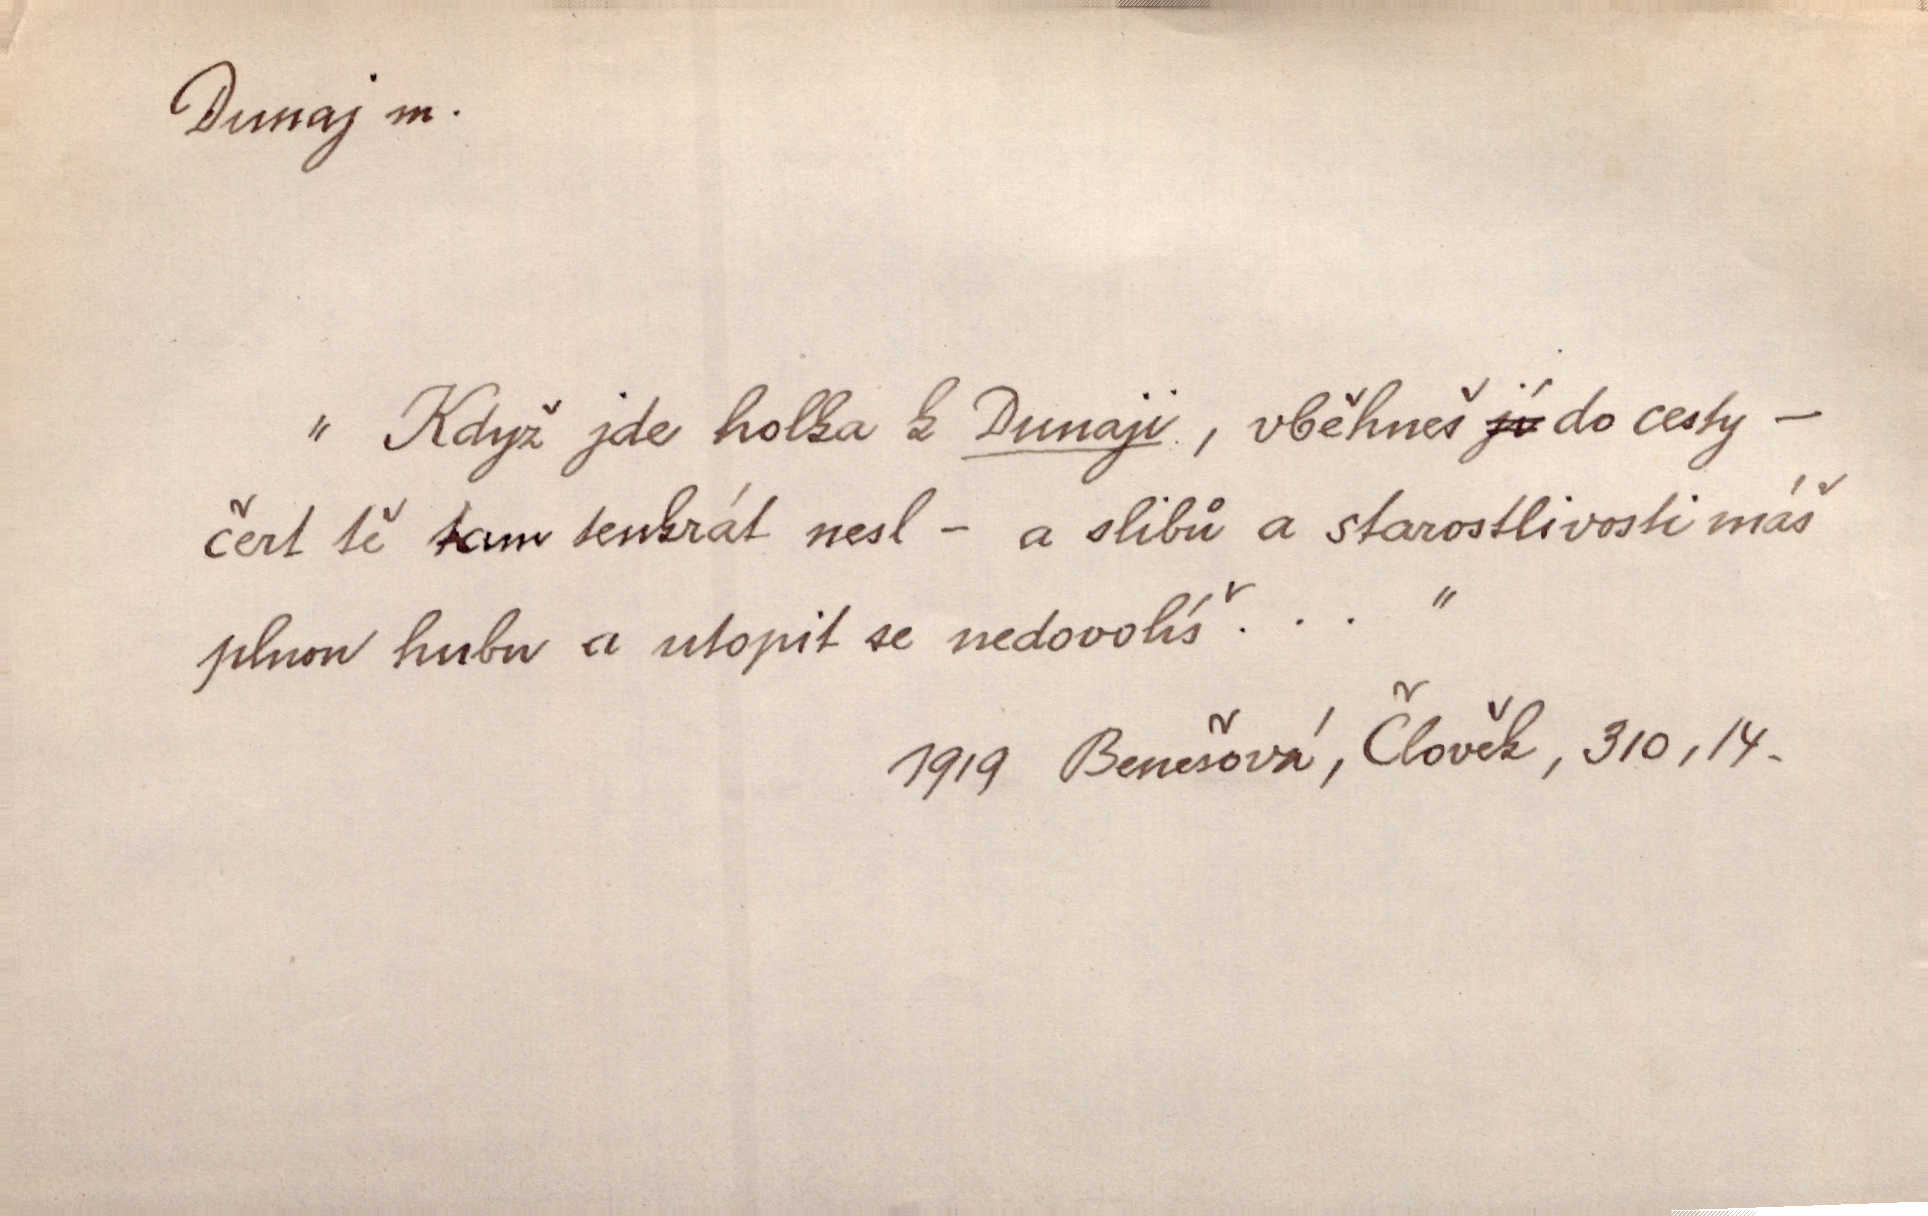 Dunaj m.
" Když jde holka k Dunaji, vběhneš do cesty –
čert tě tam tenkrát nesl – a slibů a starostlivosti máš
plnou hubu a utopit se nedovolíš. . . "
1919 Benešová, Člověk, 310, 14.